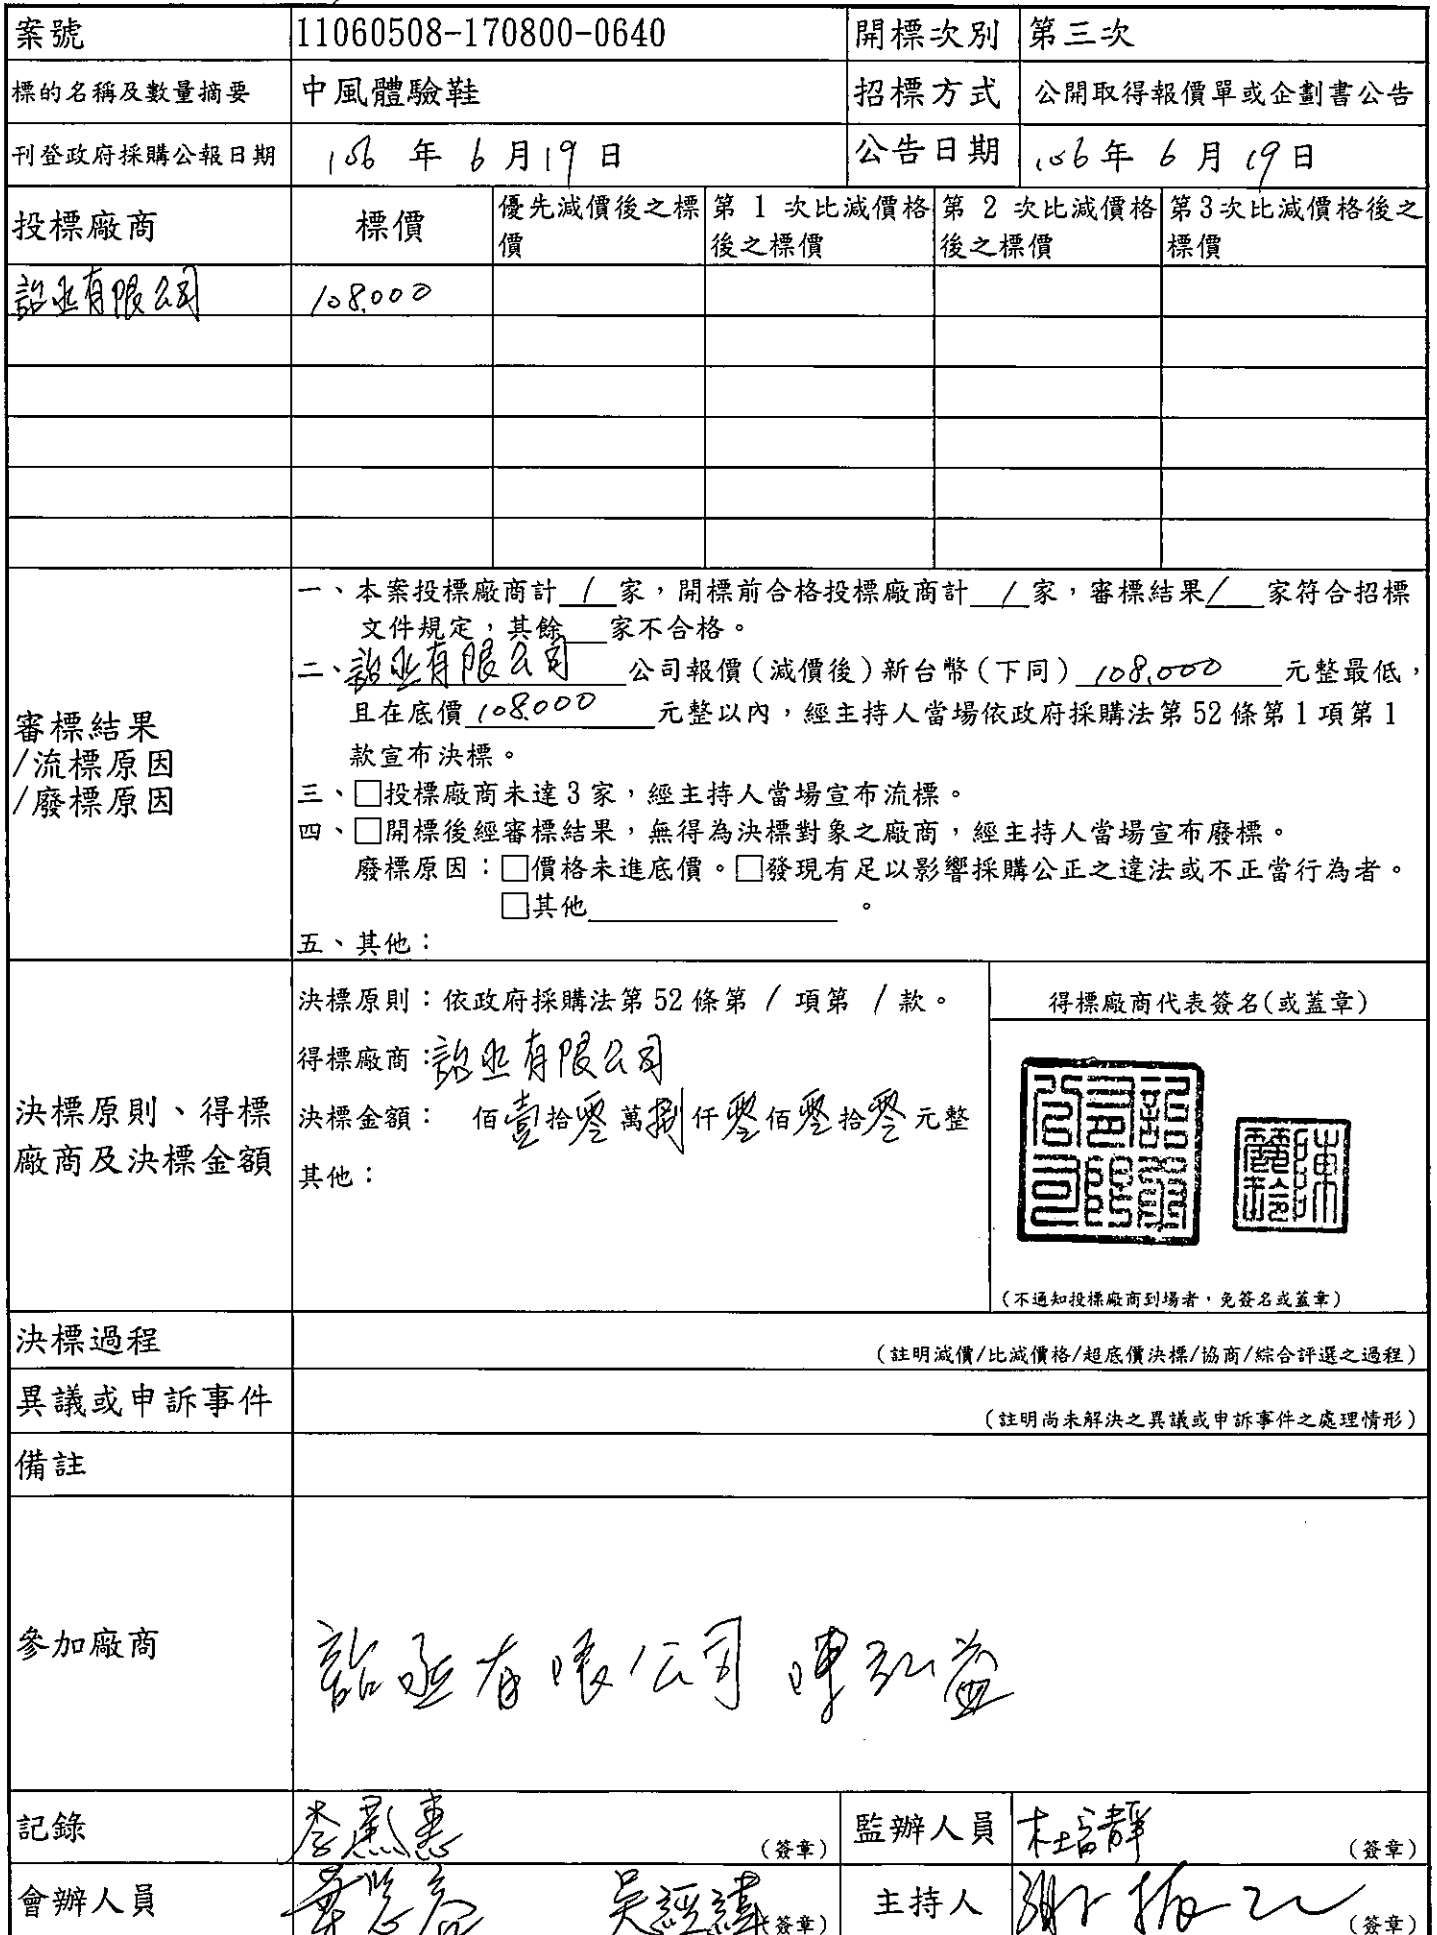 案號 11060508-170800-0640 開標次別 第三次
標的名稱及數量摘要 中風體驗鞋 招標方式 公開取得報價單或企劃書公告
刊登政府採購公報日期 106 年 6 月 19 日 公告日期 106 年 6 月 19 日
投標廠商 標價 優先減價後之標價 第 1 次比減價格後之標價 第 2 次比減價格後之標價 第3次比減價格後之標價
詔丞有限公司 108,000
審標結果
/流標原因
/廢標原因
一、本案投標廠商計 1 家,開標前合格投標廠商計 1 家,審標結果 1 家符合招標
文件規定,其餘__家不合格。
二、詔丞有限公司 公司報價(減價後)新台幣(下同) 108,000 元整最低,
且在底價 108000 元整以內,經主持人當場依政府採購法第 52 條第 1 項第 1
款宣布決標。
三、□投標廠商未達 3 家,經主持人當場宣布流標。
四、□開標後經審標結果,無得為決標對象之廠商,經主持人當場宣布廢標。
廢標原因:□價格未進底價。□發現有足以影響採購公正之違法或不正當行為者。
□其他__________。
五、其他:
決標原則、得標
廠商及決標金額
決標原則:依政府採購法第 52 條第 1 項第 1 款。
得標廠商:詔丞有限公司
決標金額: 佰壹拾零萬捌仟零佰零拾零元整
其他:
得標廠商代表簽名(或蓋章)
詔丞有限公司
(不通知投標廠商到場者,免簽名或蓋章)
決標過程 (註明減價/比減價格/超底價決標/協商/綜合評選之過程)
異議或申訴事件 (註明尚未解決之異議或申訴事件之處理情形)
備註
參加廠商 詔丞有限公司 陳弘益
記錄 (簽章) 監辦人員 (簽章)
會辦人員 吳經緯 (簽章) 主持人 (簽章)